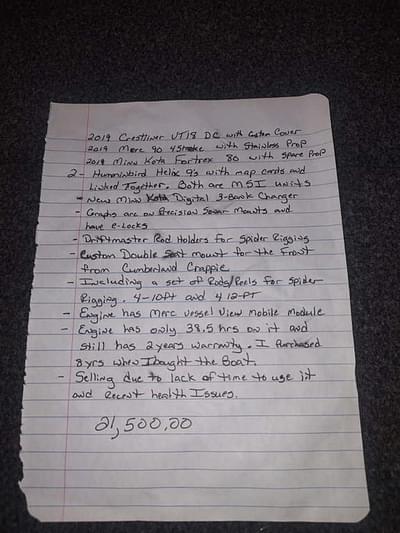 2019 Crestliner VT18 DC with Custom Cover
2019 Merc 90 4Stroke with Stainless Prop
2019 Minn Kota Fortrex 80 with Spare Prop
2 - Humminbird Helix 9s with map cards and
Linked Together. Both are MSI units
- New Minn Kota Digital 3-Bank Charger
- Graphs are on Precision Sonar Mounts and
have e-Locks
- Driftmaster Rod Holders for Spider Rigging
- Custom Double Seat mount for the Front
from Cumberland Crappie
- Including a set of Rods/Reels for Spider
Rigging. 4-10ft and 4 12-FT
- Engine has Merc Vessel View Mobile Module
- Engine has only 38.5 hrs on it and
still has 2 years warranty. I Purchased
8 yrs when I bought the Boat.
- Selling due to lack of time to use it
and Recent health Issues.
21,500.00